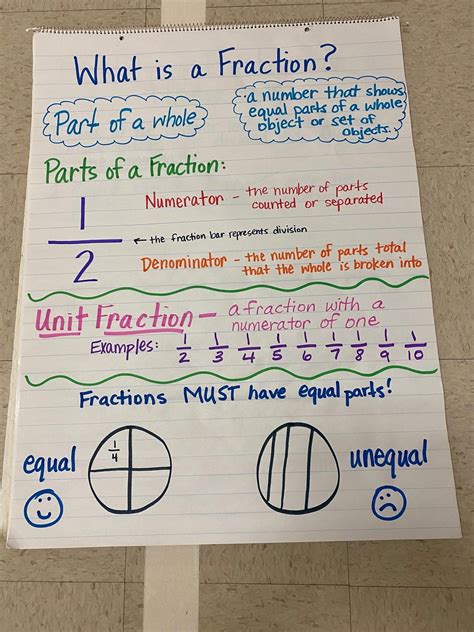 What is a Fraction?
Part of a whole
a number that shows
equal parts of a whole
object or set of
objects.
Parts of a Fraction:
1
2
Numerator - the number of parts
counted or separated
← the fraction bar represents division
Denominator - the number of parts total
that the whole is broken into
Unit Fraction - a fraction with a
numerator of one
Examples: 1/2 1/3 1/4 1/5 1/6 1/7 1/8 1/9 1/10
Fractions MUST have equal parts!
equal
1/4
unequal